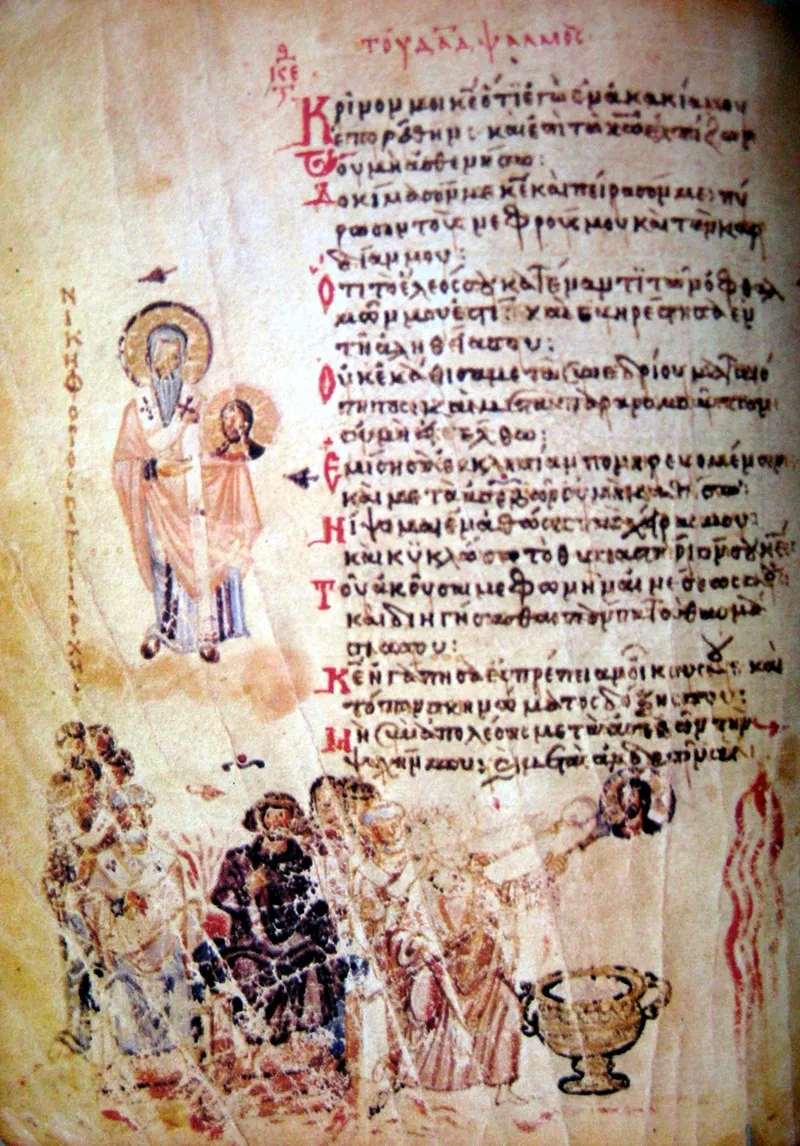 τοῦ δᾱδ ψαλμός
κε
Κρῖνόν μοι κε ὅτι ἐγὼ ἐν ἀκακία μου
ἐπορεύθην· καὶ ἐπὶ τῶ κω ἐλπίζων
οὐ μὴ ἀσθενήσω:
Δοκίμασόν με κε καὶ πείρασόν με· πύ
ρωσον τοὺς νεφρούς μου καὶ τὴν καρ
δίαν μου:
Ὅτι τὸ ἔλεός σου κατέναντι τῶν ὀφθαλ
μῶν μου ἐστί· καὶ εὐηρέστησα ἐν
τῆ ἀληθεία σου:
Οὐκ ἐκάθισα μετὰ συνεδρίου ματαιό
τητος· καὶ μετὰ παρανομούντων
οὐ μὴ εἰσέλθω:
Ἐμίσησα ἐκκλησίαν πονηρευομένων
καὶ μετὰ ἀσεβῶν οὐ μὴ καθίσω:
Νίψομαι ἐν ἀθώοις τὰς χεῖράς μου:
καὶ κυκλώσω τὸ θυσιαστήριόν σου κε
Τοῦ ἀκοῦσαί με φωνῆς αἰνέσεώς σου
καὶ διηγήσασθαι πάντα τὰ θαυμά
σιά σου:
Κε ἠγάπησα εὐπρέπειαν οἴκου σου· καὶ
τόπον σκηνώματος δόξης σου:
Μὴ συναπολέσης μετὰ ἀσεβῶν τὴν
ψυχήν μου:
ΝΙΚΗΦΟΡΟΣ ΠΑΤΡΙΑΡΧΗΣ